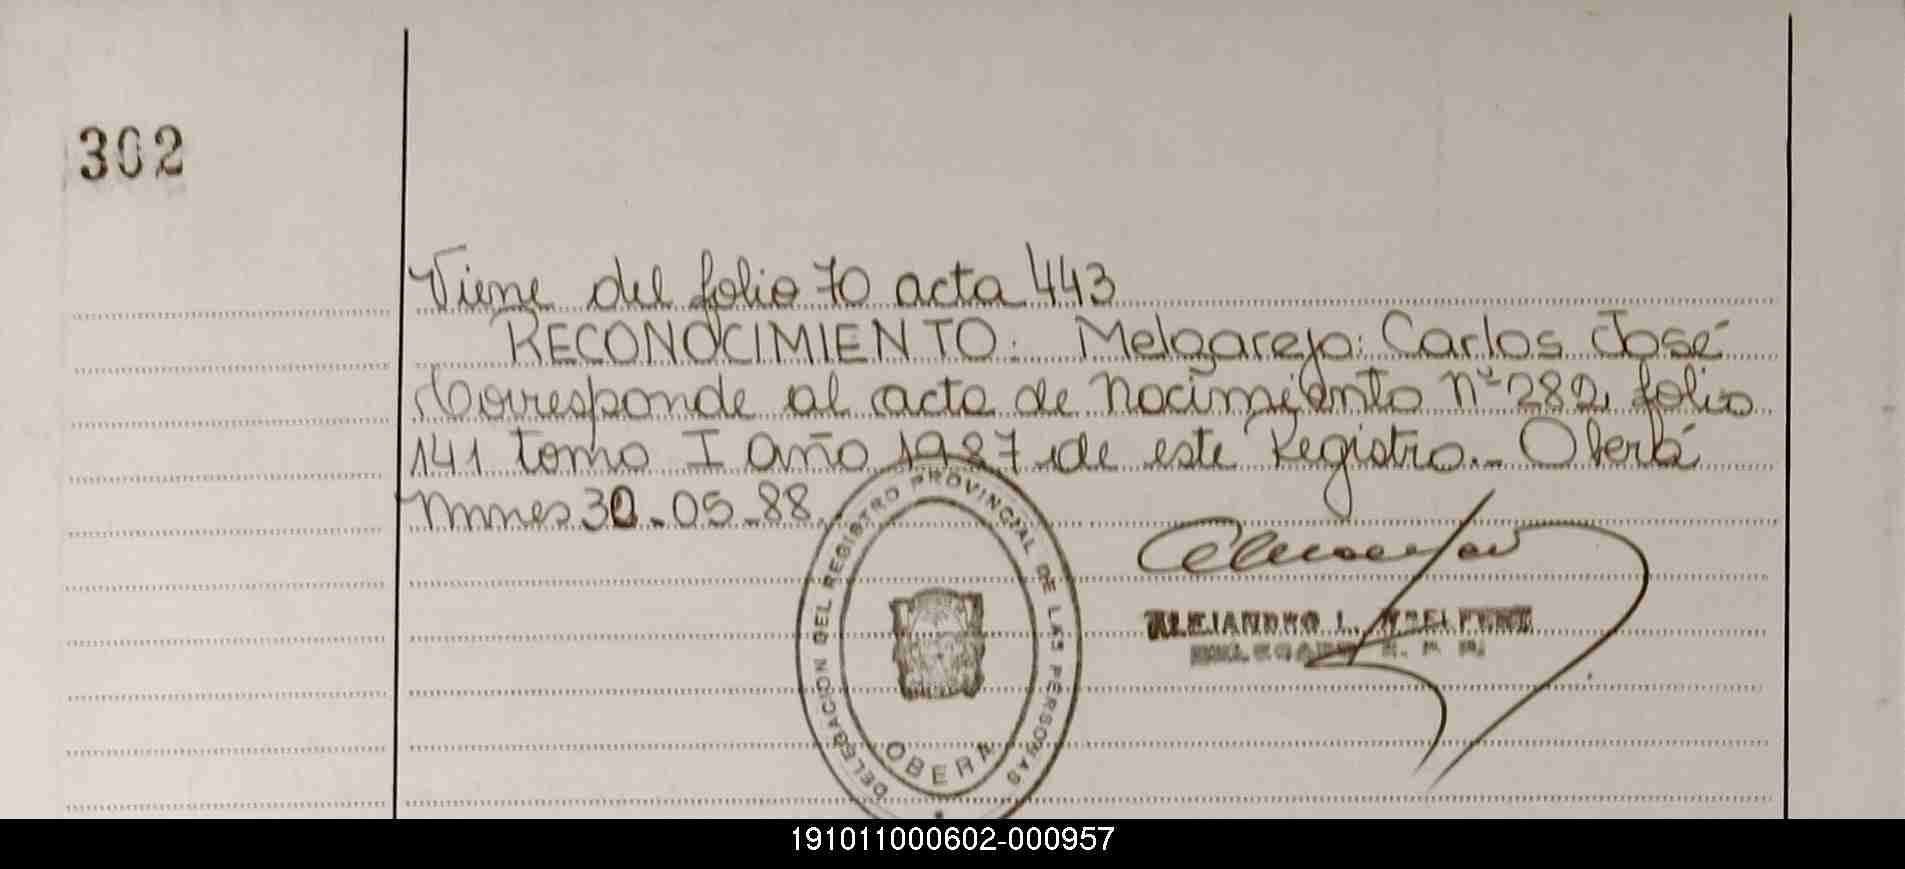 302
Viene del folio 70 acta 443
RECONOCIMIENTO: Melgarejo: Carlos José
Corresponde al acta de nacimiento nº 282, folio
141 tomo I año 1987 de este Registro.- Oberá
Mnes 30-05-88.
DELEGACION DEL REGISTRO PROVINCIAL DE LAS PERSONAS
OBERA
ALEJANDRO L.
DELEGADO R. P. P.
191011000602-000957